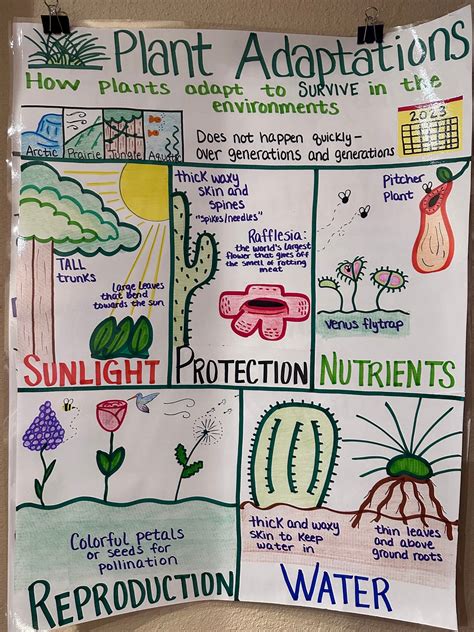 Plant Adaptations
How plants adapt to SURVIVE in the
environments
Arctic
Prairie
Jungle
Aquatic
Does not happen quickly -
over generations and generations
2023
TALL
trunks
Large leaves
that bend
towards the sun
SUNLIGHT
thick waxy
skin and
spines
"spikes/needles"
Rafflesia:
the world's largest
flower that gives off
the smell of rotting
meat
PROTECTION
Pitcher
Plant
Venus flytrap
NUTRIENTS
Colorful petals
or seeds for
pollination
REPRODUCTION
thick and waxy
skin to keep
water in
thin leaves
and above
ground roots
WATER